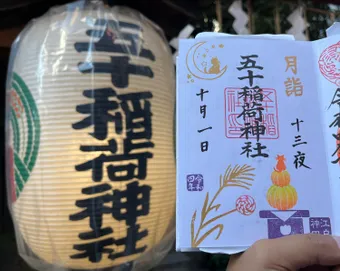 五十稲荷神社
月詣
五十稲荷神社
十三夜
十月一日